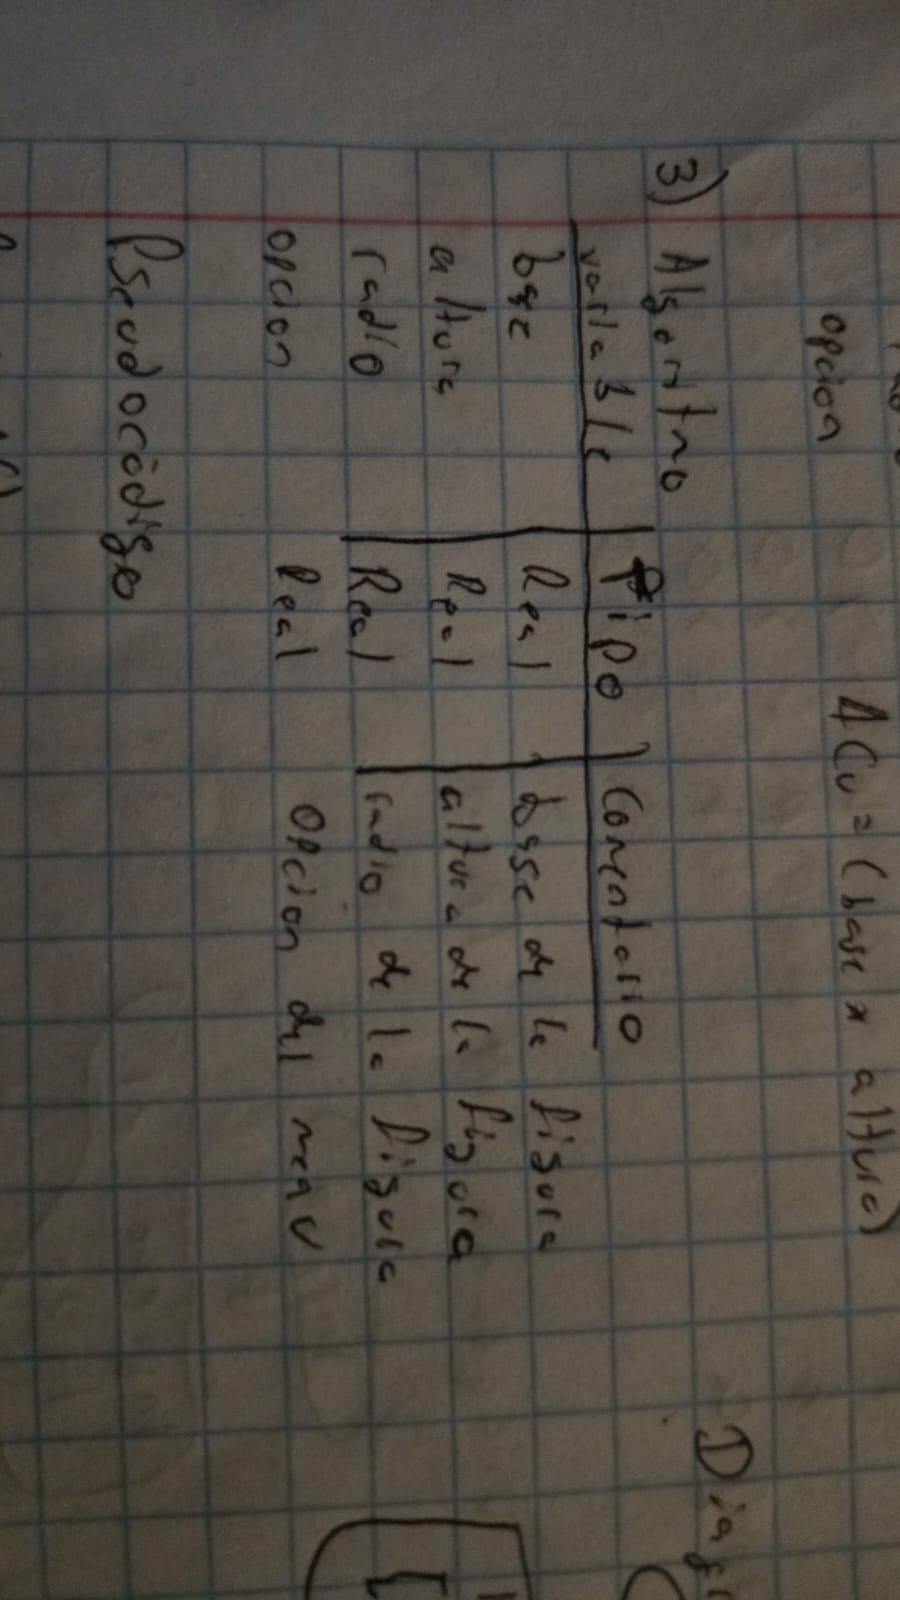 opcion
ACu = (base x altura)
3) Algoritmo
variable Tipo Comentario
base Real base de la figura
altura Real altura de la figura
radio Real radio de la figura
opcion Real opcion del menu
Pseudocódigo